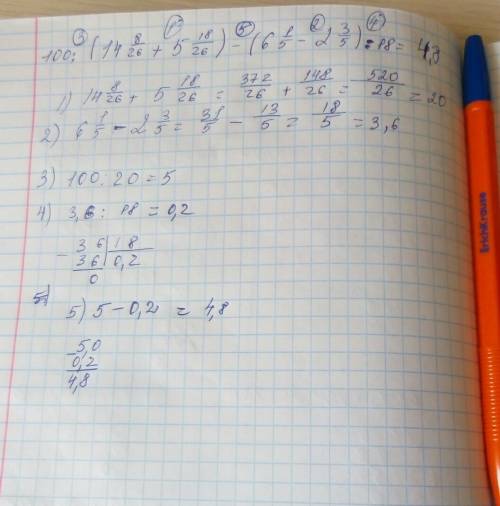 ③ ① ⑤ ② ④
100 : (14 8/26 + 5 18/26) - (6 1/5 - 2 3/5) : 18 = 4,8
1) 14 8/26 + 5 18/26 = 372/26 + 148/26 = 520/26 = 20
2) 6 1/5 - 2 3/5 = 31/5 - 13/5 = 18/5 = 3,6
3) 100 : 20 = 5
4) 3,6 : 18 = 0,2
- 36 | 18
36 | 0,2
0
5) 5 - 0,2 = 4,8
- 5,0
0,2
4,8
ErichKrause